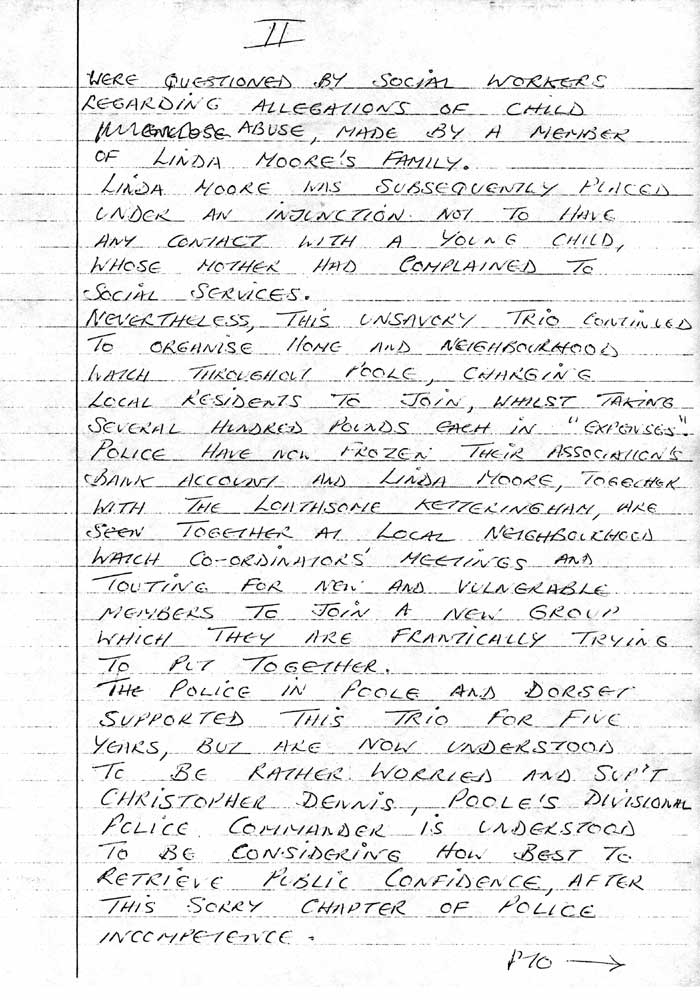 II
WERE QUESTIONED BY SOCIAL WORKERS
REGARDING ALLEGATIONS OF CHILD
ABUSE, MADE BY A MEMBER
OF LINDA MOORE'S FAMILY.
LINDA MOORE WAS SUBSEQUENTLY PLACED
UNDER AN INJUNCTION NOT TO HAVE
ANY CONTACT WITH A YOUNG CHILD,
WHOSE MOTHER HAD COMPLAINED TO
SOCIAL SERVICES.
NEVERTHELESS, THIS UNSAVORY TRIO CONTINUED
TO ORGANISE HOME AND NEIGHBOURHOOD
WATCH THROUGHOUT POOLE, CHARGING
LOCAL RESIDENTS TO JOIN, WHILST TAKING
SEVERAL HUNDRED POUNDS EACH IN "EXPENSES".
POLICE HAVE NOW FROZEN THEIR ASSOCIATION'S
BANK ACCOUNT AND LINDA MOORE, TOGETHER
WITH THE LOATHSOME KETTERINGHAM, ARE
SEEN TOGETHER AT LOCAL NEIGHBOURHOOD
WATCH CO-ORDINATORS' MEETINGS AND
TOUTING FOR NEW AND VULNERABLE
MEMBERS TO JOIN A NEW GROUP
WHICH THEY ARE FRANTICALLY TRYING
TO PUT TOGETHER.
THE POLICE IN POOLE AND DORSET
SUPPORTED THIS TRIO FOR FIVE
YEARS, BUT ARE NOW UNDERSTOOD
TO BE RATHER WORRIED AND SUP'T
CHRISTOPHER DENNIS, POOLE'S DIVISIONAL
POLICE COMMANDER IS UNDERSTOOD
TO BE CONSIDERING HOW BEST TO
RETRIEVE PUBLIC CONFIDENCE, AFTER
THIS SORRY CHAPTER OF POLICE
INCOMPETENCE.
PTO →